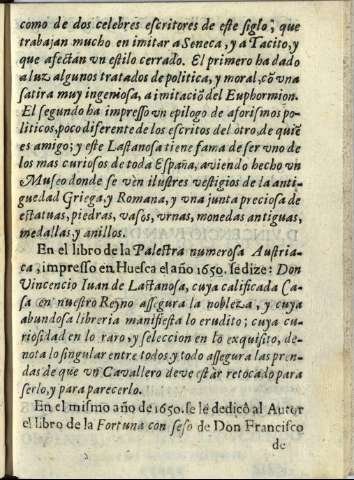 como de dos celebres escritores de este siglo, que
trabajan mucho en imitar a Seneca, y a Tacito, y
que afectan vn estilo cerrado. El primero ha dado
a luz algunos tratados de politica, y moral, cõ vna
satira muy ingeniosa, a imitaciõ del Euphormion.
El segundo ha impresso vn epilogo de aforismos po-
liticos, poco diferente de los escritos del otro, de quiẽ
es amigo; y este Lastanosa tiene fama de ser vno de
los mas curiosos de toda España, aviendo hecho vn
Museo donde se ven ilustres vestigios de la anti-
guedad Griega, y Romana, y vna junta preciosa de
estatuas, piedras, vasos, vrnas, monedas antiguas,
medallas, y anillos.
En el libro de la Palestra numerosa Austria-
ca, impresso en Huesca el año 1650. se dize: Don
Vincencio Iuan de Lastanosa, cuya calificada Ca-
sa en nuestro Reyno assegura la nobleza, y cuya
abundosa libreria manifiesta lo erudito; cuya cu-
riosidad en lo raro, y seleccion en lo exquisito, de-
nota lo singular entre todos, y todo assegura las pren-
das de que vn Cavallero deve estàr retocado para
serlo, y para parecerlo.
En el mismo año de 1650. se le dedicò al Autor
el libro de la Fortuna con seso de Don Francisco
de